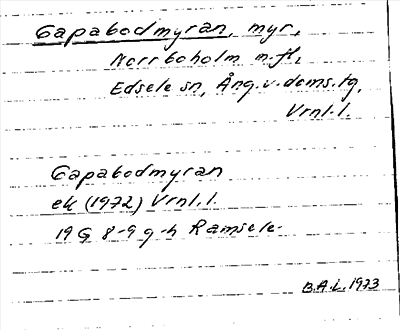 Gapabodmyran, myr,
Norrboholm m.fl,
Edsele sn, Ång.v.doms.tg,
Vrnl.l.
Gapabodmyran
ek (1972) Vrnl.l.
19 G 8-9 g-h Ramsele
B.A.L. 1973